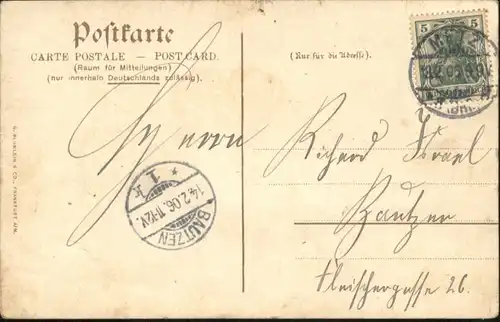 Postkarte
CARTE POSTALE – POST CARD.
(Raum für Mitteilungen)
(nur innerhalb Deutschlands zulässig.)
(Nur für die Adresse.)
5 5
Herrn
Richard Israel
Bautzen
Fleischergasse 26.
BAUTZEN
14.2.06. 11-12V.
* 1 k